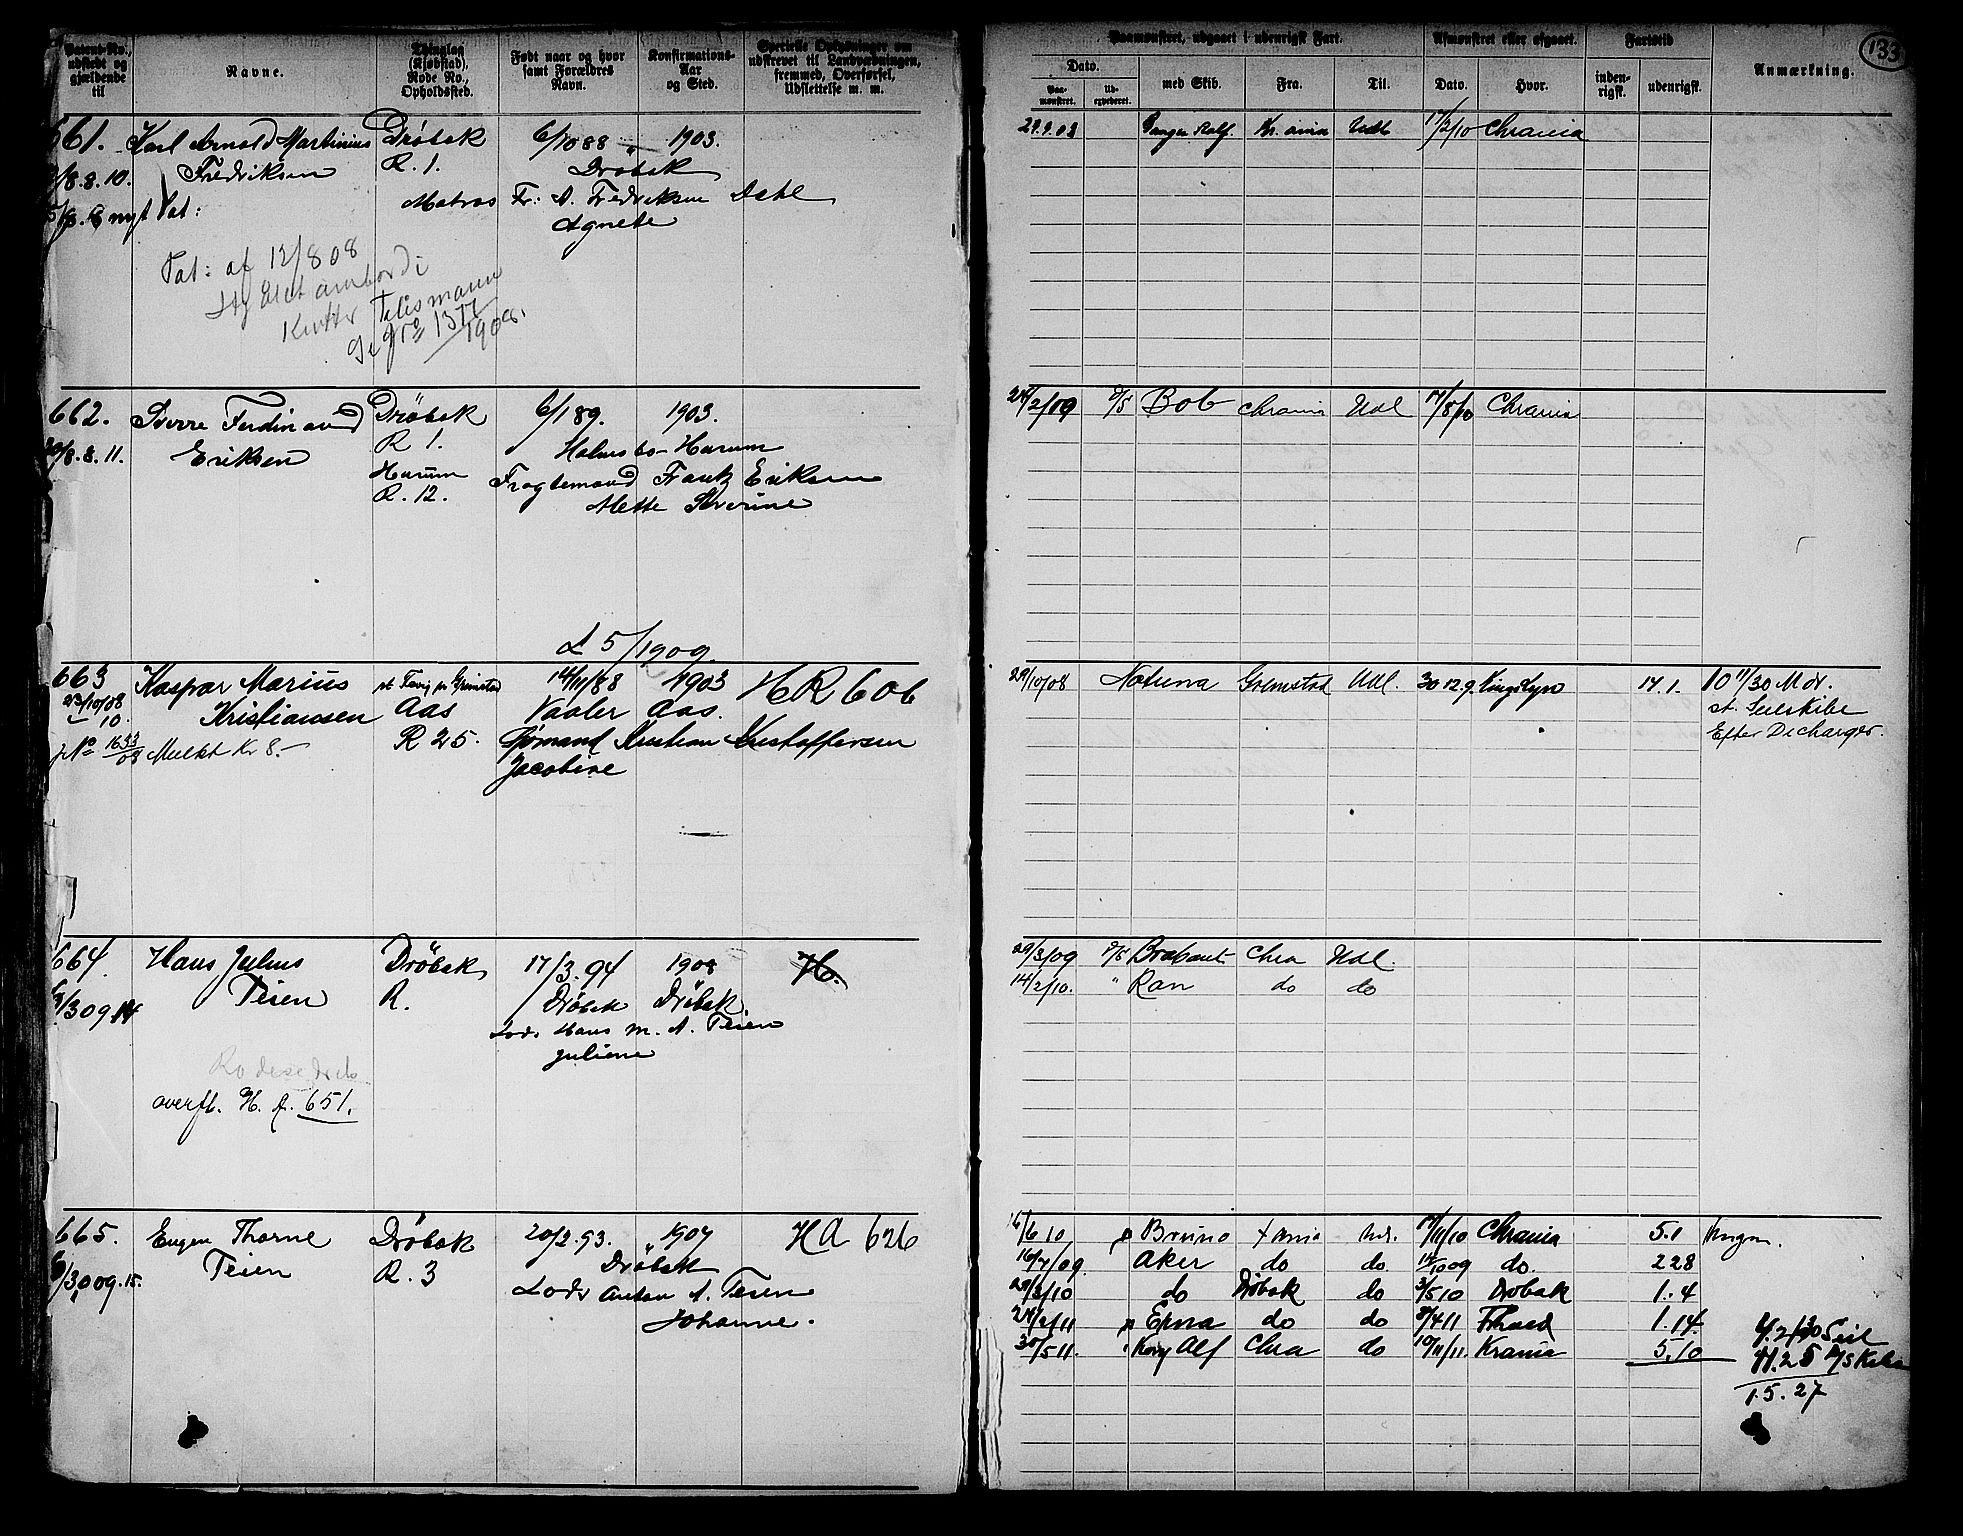 Patent-No., udstedt og gjældende til
Navne.
Thinglag (Kjøbstad), Rode No., Opholdssted.
Født naar og hvor samt Forældres Navn.
Konfirmations-Aar og Sted.
Specielle Oplysninger om udskrevet til Landværningen, fremmed, Overførsel, Udslettelse m. m.
Paamønstret, udgaaet i udenrigsk Fart.
Afmønstret eller afgaaet.
Fartstid
Anmærkning.
133
Dato.
med Skib.
Fra.
Til.
Dato.
Hvor.
inden-rigsk.
udenrigsk.
Paa-mønstret.
661.
Karl Arnold Martinius
Fredriksen
Drøbak
R. 1.
Matros
6/10 88 " 1903.
Drøbak
Fr: A. Fredriksen Dahl
Agnete
8.8.10.
nyt Pat:
Pat: af 12/8 08
ombord i
Kutter Talismann
29.9.08 Ganger Rolf. Kr.ania Udl 17/2/10 Chrania
662.
Sverre Ferdinand
Eriksen
Drøbak
R 1.
Hurum
R. 12.
6/1 89. 1903.
Holmsbo - Hurum
Fragtemand Frank Eriksen
Mette Severine
8.8.11.
24/2/09 Bob Chrania Udl 17/8/10 Chrania
5/1909.
663
Kaspar Marius
Kristiansen
23/10/08
10.
JNo 1633/08 Mulkt Kr 8.-
pr Grimstad
Aas
R 25.
14/11/88 1903
Vaaler Aas.
Kristian Kristoffersen
Jacobine
HR 606
29/10/08 Natuna Grimstad Udl. 30 12.9 Kingslyn 14.1.
st. Seilskibe
Efter Decharger.
664.
Hans Julius
Teien
Drøbak
R.
17/3.94 1908
Drøbak Drøbak
Lods Hans M. A. Teien
Juliene
H.
/3 09 14
overfl. H. A. 651.
29/3/09 Brabant Chra Udl.
14/2/10. " Ran do do
665.
Eugen Thorne
Teien
Drøbak
R. 3
20/2.93. " 1907
Drøbak
Lods Anton A. Teien
Johanne.
HA 626
/3.09.15.
16/6 10 Bruno Xania Udl. 17/11/10 Chrania 5.1 Yngm.
16/7/09. Aker do do. 14/10 09 do. 2 28
29/3/10 do Drøbak do 3/5 10 Drøbak 1.4
24/2/11 Erna do do 8/4 11 1.14
30/5 11. Kong Alf Chra do 10/11/11. Krania 5.10
1.5.27